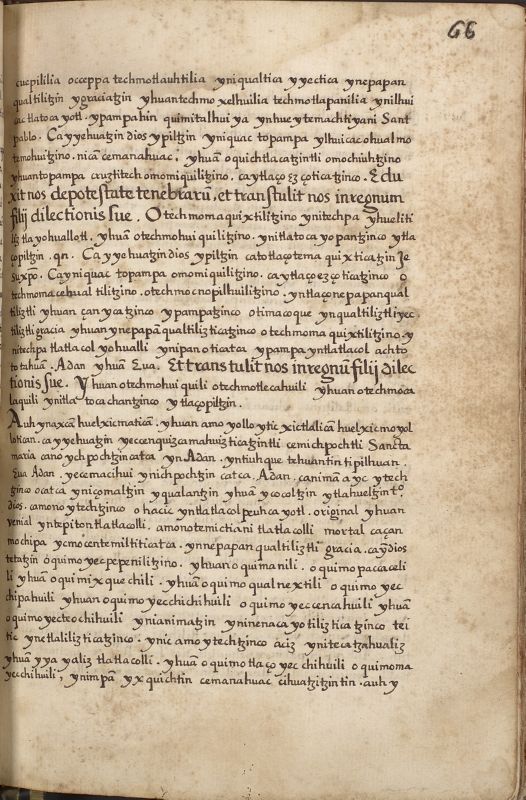 66
cuepililia occeppa techmotlauhtilia yniqualtica yyectica ynepapan
qualtiliztin ygraciatzin yhuantechmo xelhuilia techmotlapanilia ynilhui
cac tlatoca yotl. ypampahin quimitalhui ya ynhueytemachtiyani Sant
pablo. Ca yyehuatzin dios ypiltzin yniquac topampa ylhuicacohualmo
temohuitzino. nicã cemanahuac, yhuã oquichtlacatzintli omochiuhtzino
yhuantopampa cruztitech omomiquilitzino. caytlaço ez çoticatzinco. Edu
xit nos depotestate tenebrarũ, et transtulit nos inregnum
filij dilectionis sue. Otechmomaquixtilitzino ynitechpa yhueliti
liz tlayohuallotl. yhuã otechmohuiquilitzino. ynitlatocayopantzinco ytla
çopiltzin. qn. Ca yyehuatzin dios ypiltzin catotlaçotemaquixticatzin Je
suxpõ. Cayniquac topampa omomiquilitzino. caytlaço ez çoticatzinco o
techmomacehualtililitzino. otechmocnopilhuilitzino. yntlaçonepapanqual
tiliztli yhuan çan ycatzinco ypampatzinco otimacoque ynqualtiliztli yec
tiliztli gracia yhuan ynepapã qualtilizticatzinco otechmomaquixtilitzino. y
nitechpa tlatlacol yohualli ynipan oticatca ypampa yntlatlacol achto
totahuã. Adan yhuã Eua. Et transtulit nos inregnũ filij dilec
tionis sue. Yhuan otechmohuiquili otechmotlecahuili yhuan otechmoca
laquili ynitlatocachantzinco ytlaçopiltzin.
Auhynaxcã huelxicmaticã. yhuan amo yollo ytic xictlalicã huelxicmoyol
lotican. ca yyehuatzin yeccenquizcamahuizticatzintli cemichpochtli Sancta
maria cano ychpochtzin catca yn Adan. yntiuhque tehuantin tipilhuan.
Eua Adan. yecemacihui ynichpochtzin catca. Adan. canimã ayc ytech
tzinco ocatca yniçomaltzin yqualantzin yhuã ycocoltzin ytlahueltzin tº
dios. camono ytechtzinco ohacic yntlatlacolpeuhcayotl. original yhuan
venial yntepiton tlatlacolli. amonotemictiani tlatlacolli mortal caçan
mochipa ycmocentemiltiticatca. ynnepapan qualtiliztli gracia. caỹ dios
tetatzin oquimo yecpepenilitzino. yhuan oquimanili. oquimopaccaceli
li yhuã oquimixquechili. yhuã oquimoqualnextili oquimo yec
chipahuili yhuan oquimo yecchichihuili oquimo yeccencahuili yhuã
oquimo yecteochihuili ynianimatzin yninenacayotiliztica tzinco tei
tic ynetlaliliz ticatzinco. ynic amo ytechtzinco aciz yniteca tzahualiz
yhuã yyayaliz tlatlacolli. yhuã oquimotlaço yecchihuili oquimoma
yecchihuili, ynimpã yxquichtin cemanahuac cihuatzitzintin. auh y